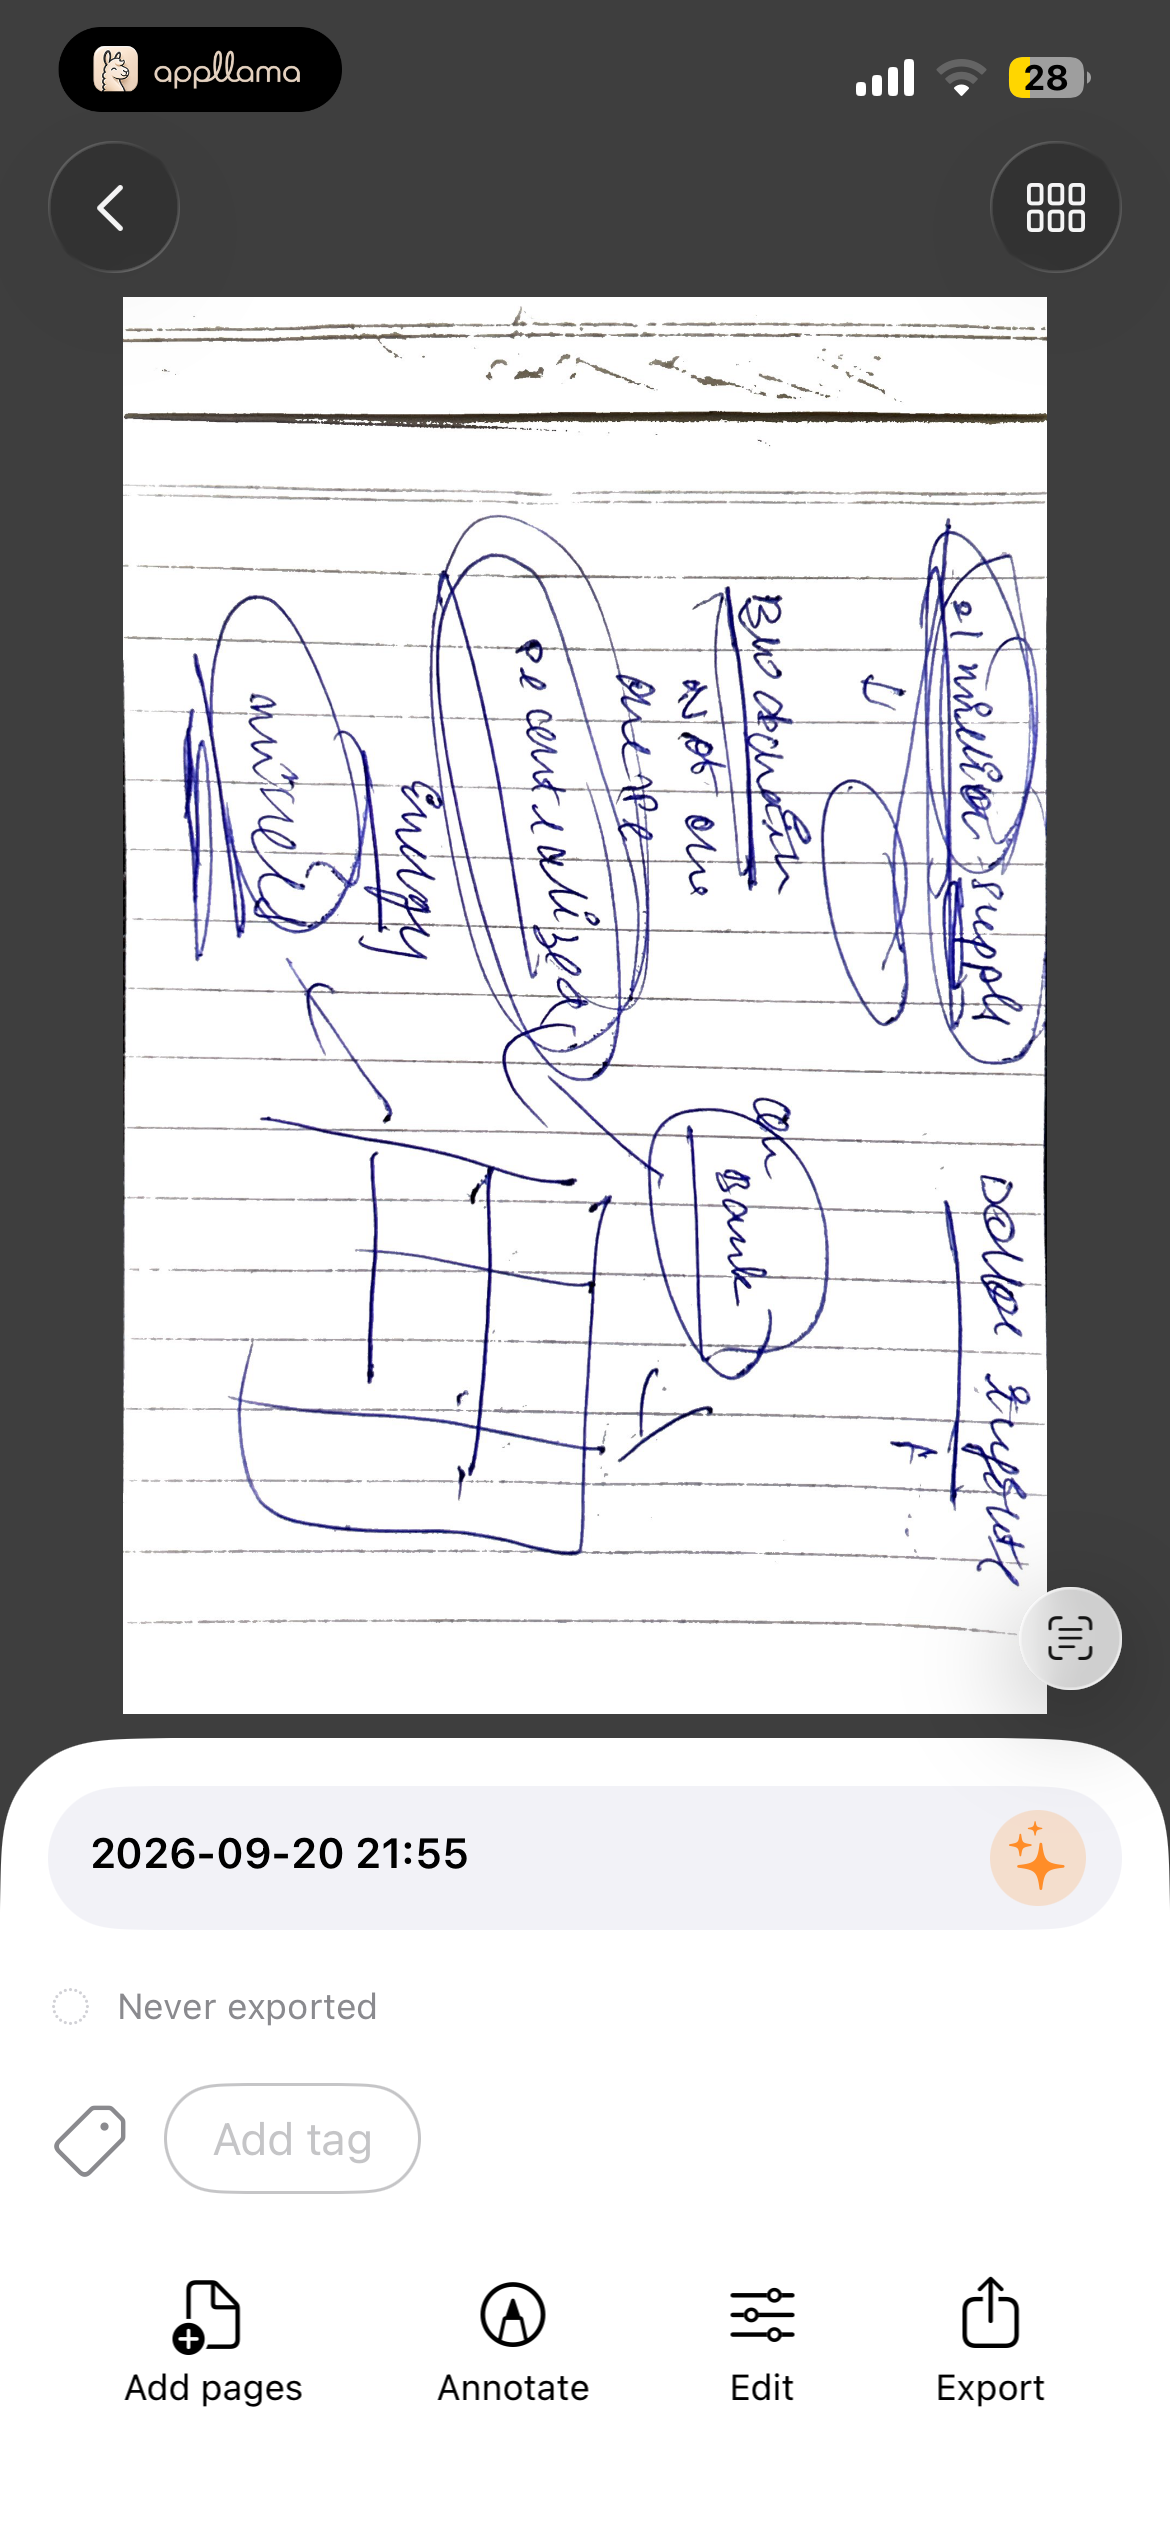 appllama
28
21 million supply
Dollar
Blockchain
Not one
one PPL
Bank
Decentralized
Energy
2026-09-20 21:55
Never exported
Add tag
Add pages
Annotate
Edit
Export